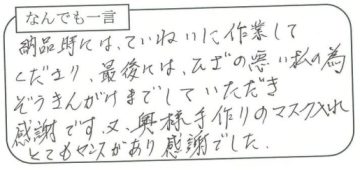 なんでも一言
納品時には、ていねいに作業して
くださり、最後には、ひざの悪い私の為
ぞうきんがけまでしていただき
感謝です。又、奥様手作りのマスク入れ
とてもセンスがあり感謝でした。